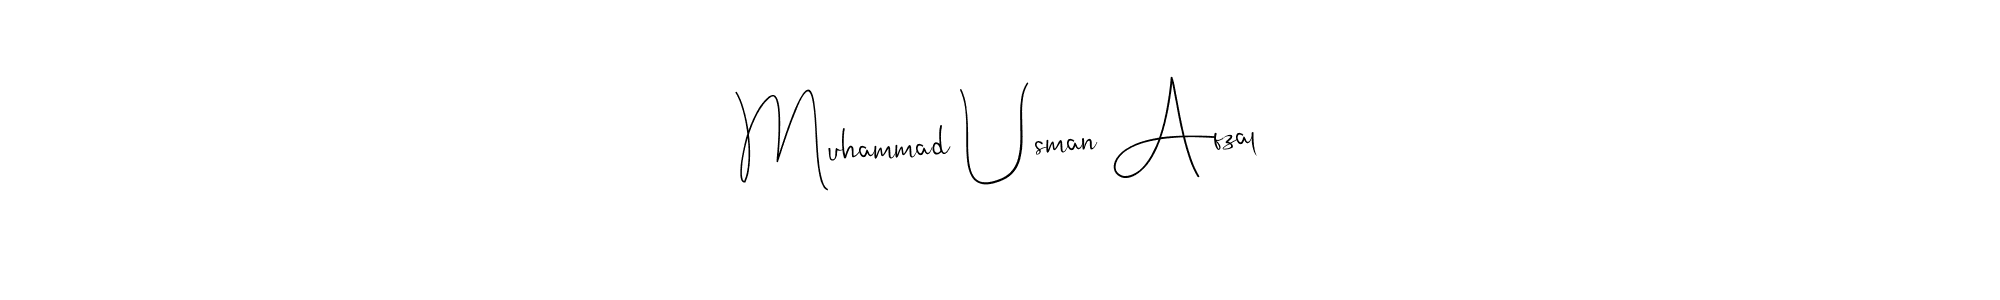 Muhammad Usman Afzal